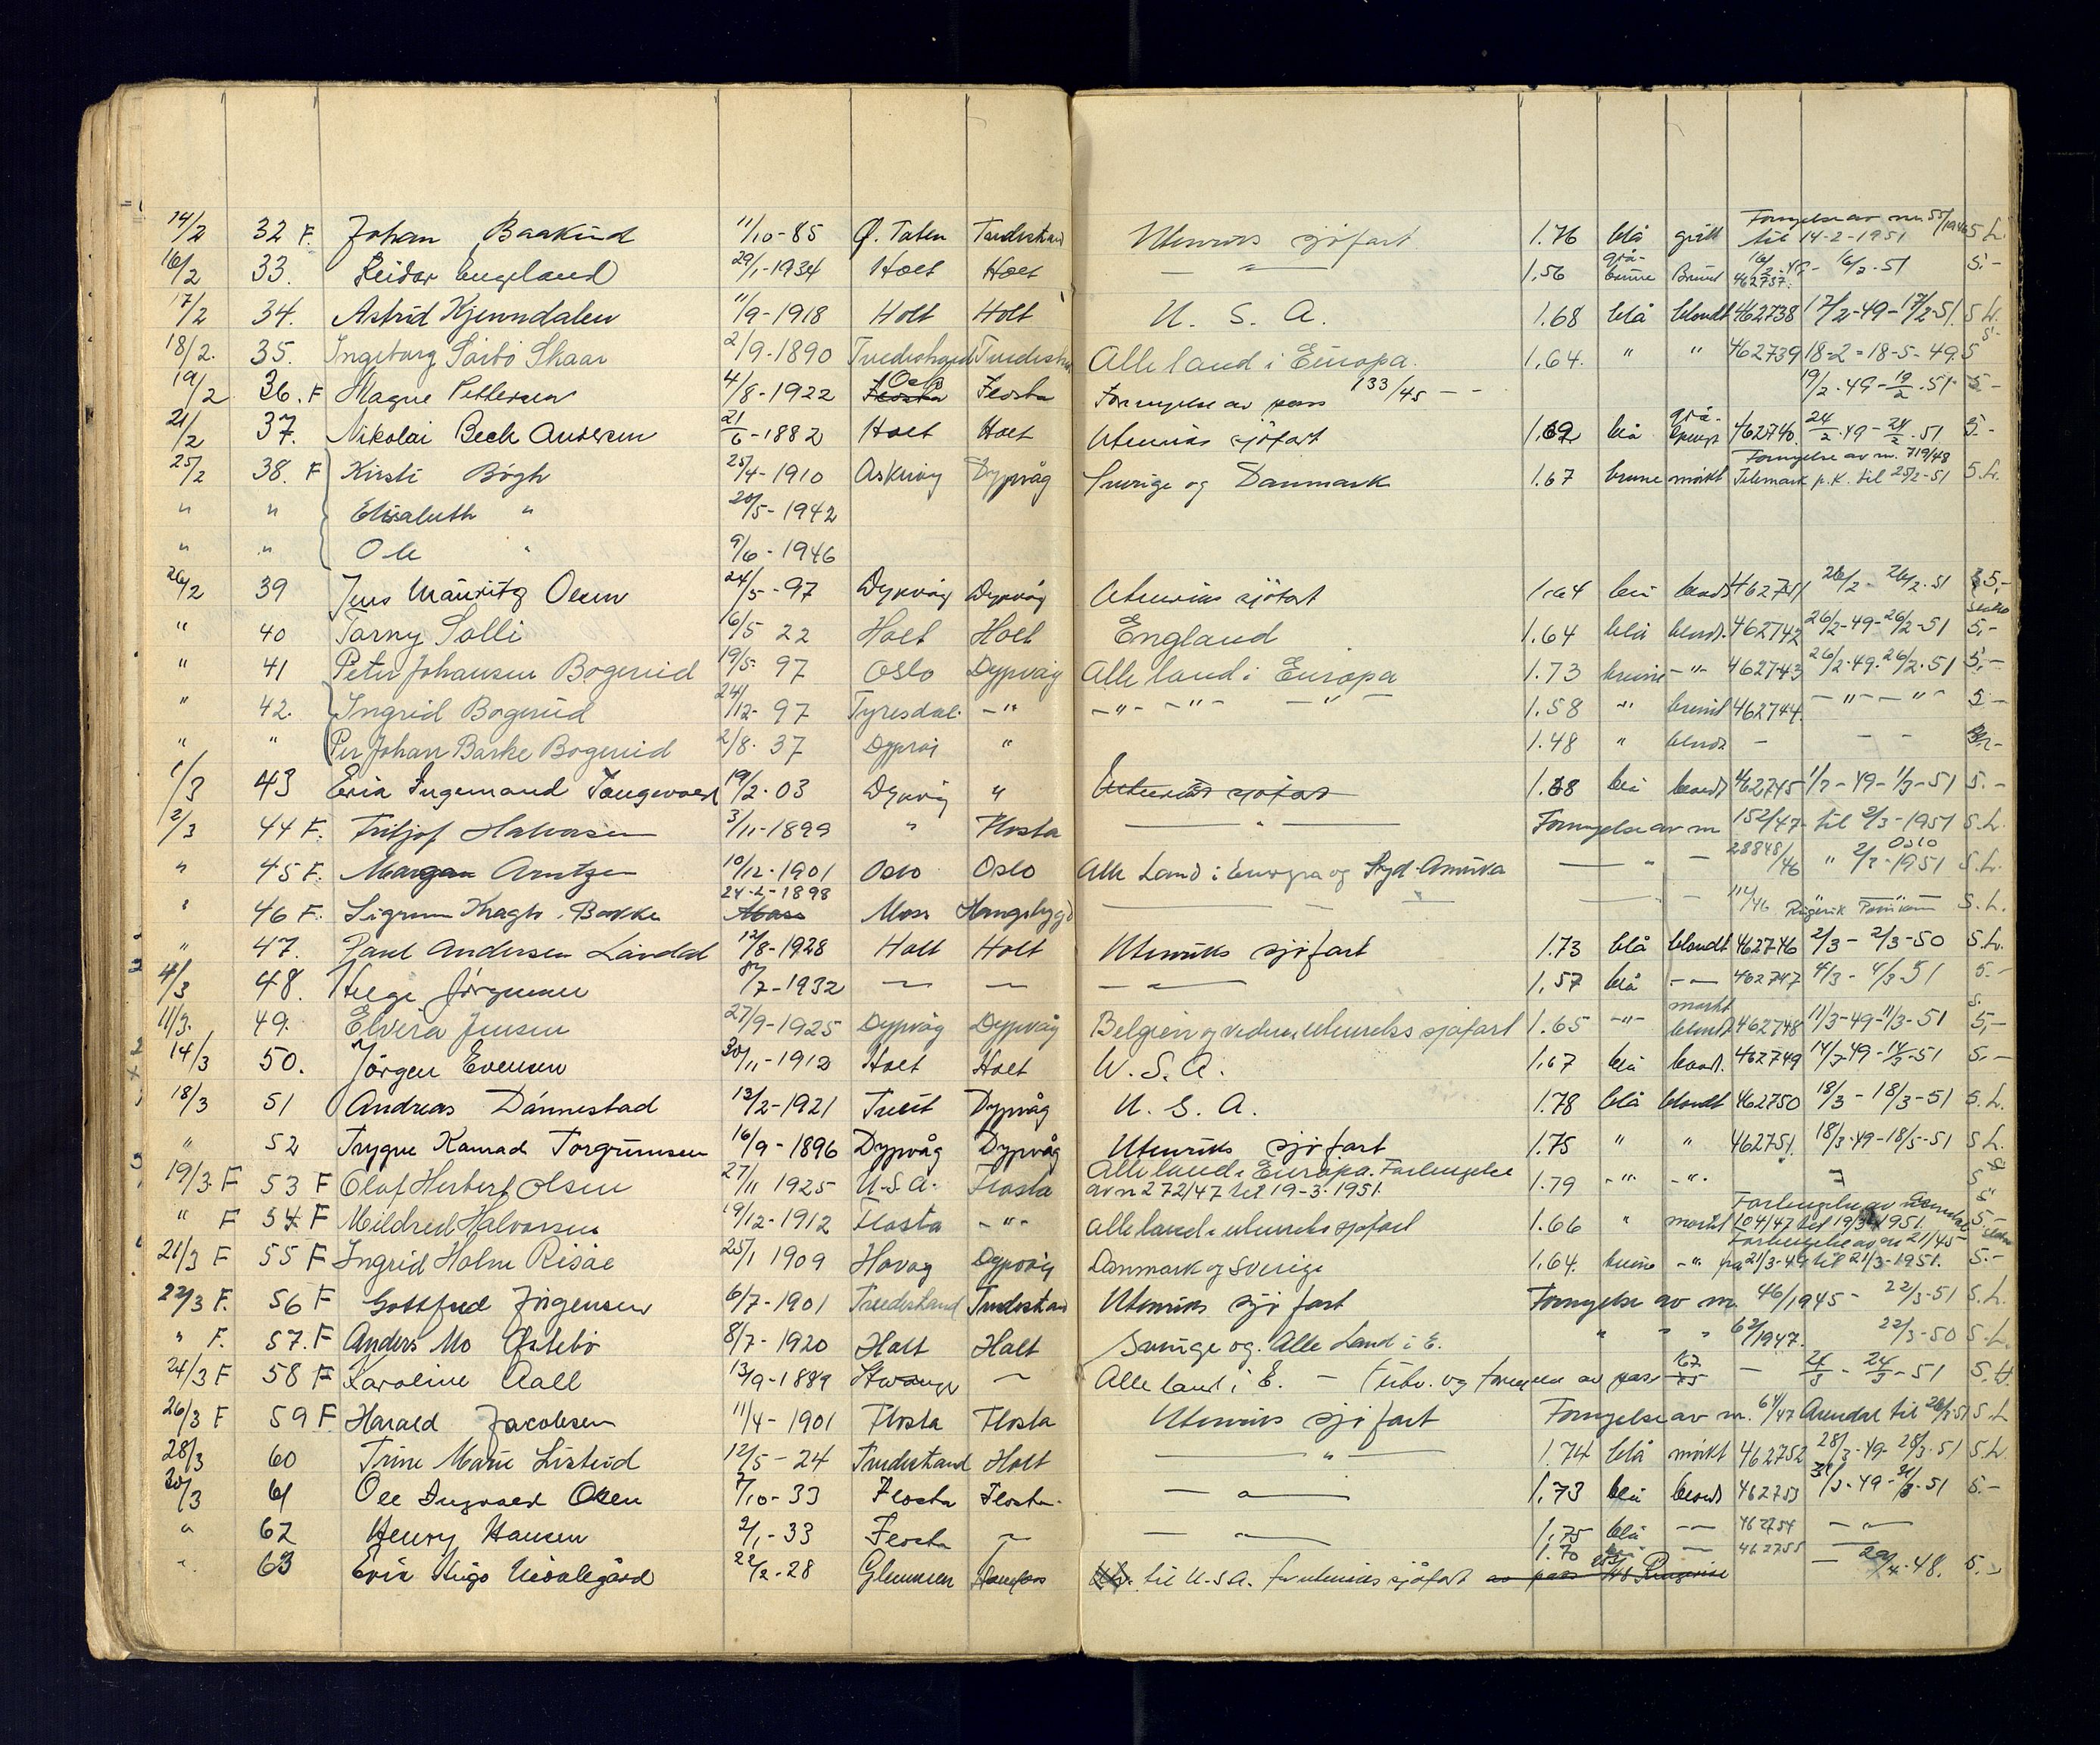 14/2 32 F. Johan Baakind 11/10-85 Ø. Toten Tvedestrand Utenriks sjøfart 1.76 blå grått Fornyelse av nr. 55/1946 til 14-2-1951 5 L.
16/2 33. Reidar Engeland 29/1-1934 Holt Holt — " — 1.56 grå-brune Brunt 462737. 16/2-49 - 16/2-51 5.-
17/2 34. Astrid Kjenndalen 11/9-1918 Holt Holt U. S. A. 1.68 blå blondt 462738 17/2-49-17/2-51. 5 L.
18/2. 35. Ingeborg Sørbö Skaar 2/9-1890 Tvedestrand Tvedestrand Alle land i Europa. 1.64. " " 462739 18-2-18-5-49. 5
19/2 36. F Magne Pettersen 4/8-1922 Oslo Flosta Fornyelse av pass 133/45 - - 19/2.49-19/2.51 5-
21/2 37. Nikolai Bech Andersen 21/6-1882 Holt Holt Utenriks sjöfart 1.69 blå grå- 462740. 24/2.49-24/2.51 5.-
25/2 38. F Kirsti Bögh 25/4-1910 Askvoy Dypvåg Sverige og Danmark 1.67 brune mörkt Fornyelse av nr. 719/48 Telemark p.k. til 25/2-51 5.L.
" " Elisabeth " 20/5-1942
" " Ole " 9/6-1946
26/2 39 Jens Mauritz Olsen 24/5-97 Dypvåg Dypvåg Utenriks sjöfart 1.64 blå blondt 462741 26/2- 26/2.51 5,-
" 40 Torny Solli 16/5 22 Holt Holt England 1.64 blå blondt. 462742 26/2-49-26/2-51 5,-
" 41 Peter Johansen Bogerud 19/5- 97 Oslo Dypvåg Alle land i Europa 1.73 brune - " - 462743 26/2.49.26/2.51 5,-
" 42. Ingrid Bogerud 24/12- 97 Tyresdal. - " - " - - " - - " - 1.58 " brunt 462744. - " - - " - 5 -
" " Per Johan Barke Bogerud 2/8. 37 Dypvåg " 1.48 " blondt - - -
1/3 43 Erik Ingemand Tangevald 19/2.03 Dypvåg " Utenriks sjøfart 1.68 blå blondt 462745 1/3-49-1/3-51 5.-
2/3 44 F. Fritjof Halvorsen 3/11-1899 " Flosta — " — Fornyelse av nr 152/47- til 2/3-1951 5.L.
" 45 F. Morgan Arntzen 10/12-1901 Oslo Oslo Alle Land i Europa og Syd-Amerika — " — 28848/46 " Oslo 2/3-1951 5.L.
" 46 F. Sigrun Kragh Bakke 24-2-1898 Moss — — — 114/46 5.L.
" 47. Paul Andersen Låvdal 12/8-1928 Holt Holt Utenriks sjøfart 1.73 blå blondt 462746 2/3- 2/3-50 5.L.
4/3 48. Helge Jörgensen /7-1932 — — — " — 1,57 blå - " - 462747 4/3- 4/3-51 5.-
11/3. 49. Elvira Jensen 27/9-1925 Dypvåg Dypvåg Belgien og videre utenriks sjøfart 1.65 - " - mørkt blondt 462748 11/3-49-11/3-51 5,-
14/3 50. Jörgen Evensen 30/11-1912 Holt Holt U.S.A. 1.67 blå blondt. 462749 14/3-49-14/3-51 5.-
18/3 51 Andreas Dannestad 13/2-1921 Dypvåg U. S. A. 1.78 blå blondt 462750 18/3- 18/3-51 5.L.
" 52 Trygve Konrad Torgrimsen 16/9-1896 Dypvåg Dypvåg Utenriks sjøfart 1.75 " " 462751. 18/3-49-18/5-51 5 L.
19/3 F 53 F Olaf Herbert Olsen 27/11 1925 U.S.A. Flosta Alle land i Europa. Forlengelse av nr 272/47 til 19-3-1951. 1.79 - " - - " - 5
" F 54 F Mildred Halvorsen 19/12-1912 Flosta - " - Alle land i utenriks sjøfart 1.66 " mørkt Forlengelse av Arendal 104/47 til 19/3-1951. 5.-
21/3 F 55 F Ingrid Holm Risåe 25/1 1909 Høvåg Dypvåg Danmark og Sverige 1.64. brune - " - Forlengelse av nr 21/45 fra 21/3-49 til 21/3-1951. 5.-
22/3 F. 56 F Gottfred Jörgensen 6/7-1901 Tvedestrand Tvedestrand Utenriks sjø fart Fornyelse av nr. 46/1945- 22/3-51 5.L.
" F. 57. F Anders Mo Østebö 8/7-1920 Holt Holt Sverige og. Alle Land i E. " " " 62/1947. 22/3-50 5.L.
24/3 F 58 F Karoline Aall 13/9-1889 — Alle land i E. - Utv. og fornyelse av pass 67 — 24/3- 24/3-51
26/3 F 59 F. Harald Jacobsen 11/4-1901 Flosta Flosta Utenriks sjøfart Fornyelse av nr. 64/47 Arendal til 26/3-51 5.L
28/3 60 Trine Marie Listeid 12/5-24 Tvedestrand Holt — " — 1.74 blå mörkt 462752 28/3-49 28/3.51 5.L.
30/3 61 Ole Ingvald Olsen 7/10-33 Flosta Flosta. — " — 1,73 blå blondt 462753 5.-
" 62 Henry Hansen 2/1-33 Flosta — — " — 1,75 blå - " - 462754 — " —
" 63 Erik Hugo 22/2-28 Glemmen til U.S.A. for utenriks sjöfart 1.70 — 462755 — 29/4.48. 5.-